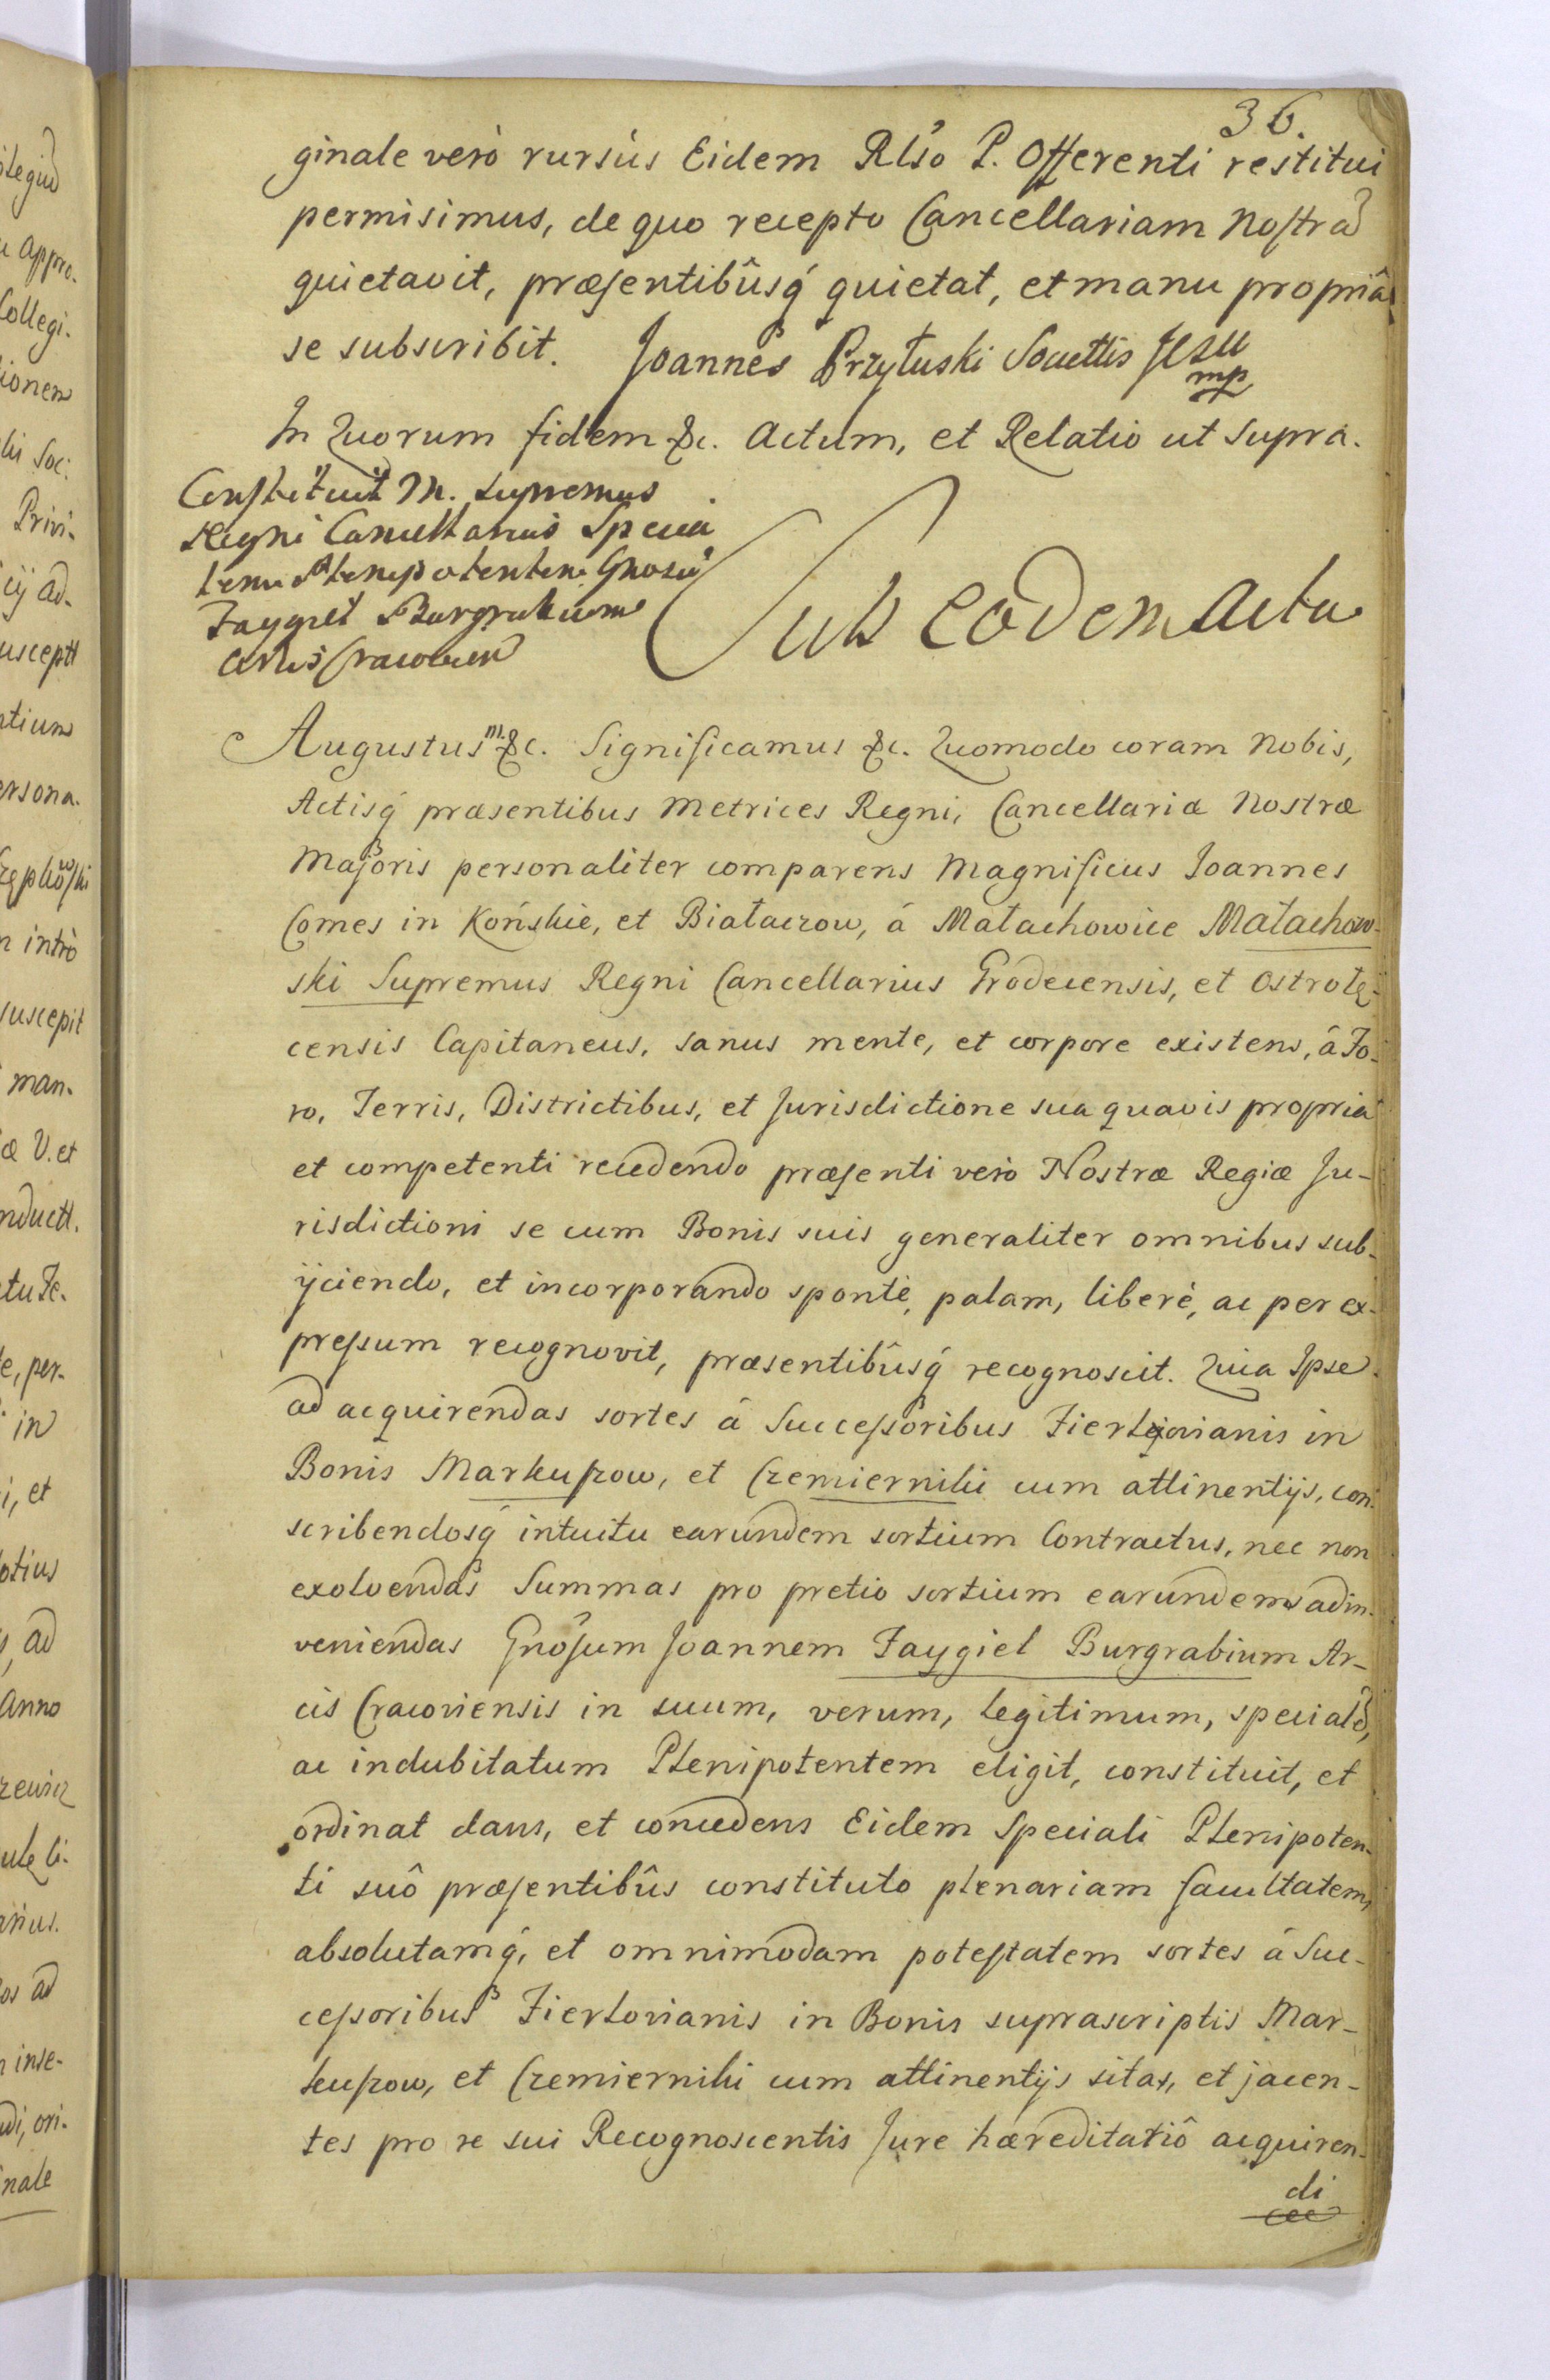 36.
ginale verò rursùs Eidem Rlso P. Offerenti restitui
permisimus, de quo recepto Cancellariam Nostrã
quietavit, præsentibûsq́ quietat, et manu propriâ
se subscribit. Joannes Przyłuski Soctis Jesu
mp
In Quorum fidem &c. Actum, et Relatio ut supra.
Constituit M. Supremus
Regni Cancellarius Specia
lem Plenipotentem Gnosũ
Faygiel Burgrabium
Arcis Cracovien
Sub eodem Actu
Augustus III &c. Significamus &c. Quomodo coram Nobis,
Actisq́ præsentibus Metrices Regni, Cancellariæ Nostræ
Majoris personaliter comparens Magnificus Joannes
Comes in Końskie, et Białaczow, á Małachowice Małachow-
ski Supremus Regni Cancellarius Grodecensis, et Ostrołę-
censis Capitaneus, sanus mente, et corpore existens, â Fo-
ro, Terris, Districtibus, et Jurisdictione sua quavis propria
et competenti recedendo præsenti verò Nostræ Regiæ Ju-
risdictioni se cum Bonis suis generaliter omnibus sub-
ijciendo, et incorporando spontè, palam, liberè, ac per ex-
pressum recognovit, præsentibûsq́ recognoscit. Quia Ipse
ad acquirendas sortes á Successoribus Fierlejovianis in
Bonis Markuszow, et Czemierniki cum attinentijs, con-
scribendosq́ intuitu earundem sortium Contractus, nec non
exolvendas Summas pro pretio sortium earundem adin-
veniendas Gnosum Joannem Faygiel Burgrabium Ar-
cis Cracoviensis in suum, verum, legitimum, specialẽ,
ac indubitatum Plenipotentem eligit, constituit, et
ordinat dans, et concedens Eidem Speciali Plenipoten-
ti suô præsentibûs constituto plenariam facultatem,
absolutamq́, et omnimodam potestatem sortes á Suc-
cessoribus Fierlovianis in Bonis suprascriptis Mar-
kuszow, et Czemierniki cum attinentijs sitas, et jacen-
tes pro re sui Recognoscentis Jure hæreditatiô acquiren-
di